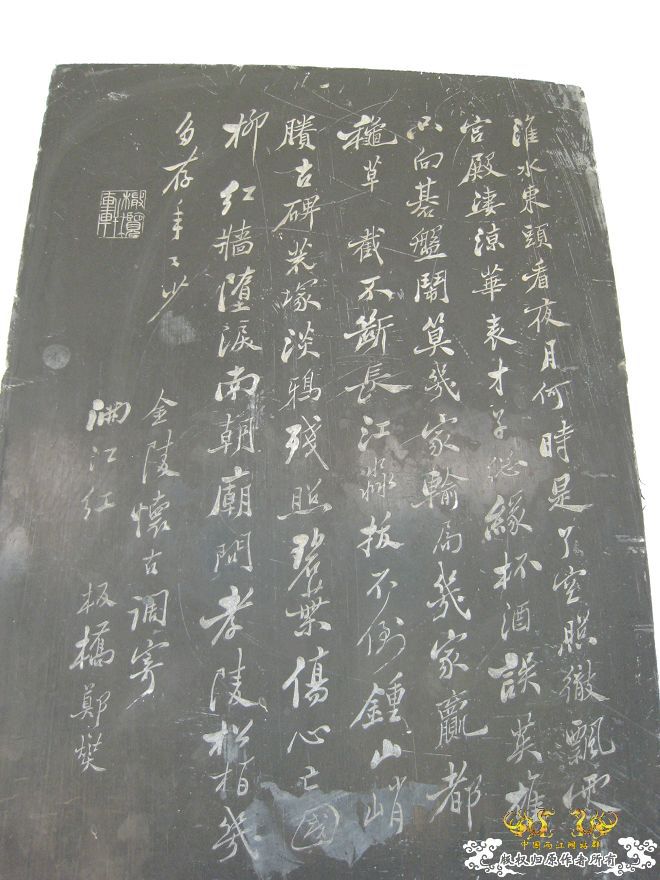 淮水東頭看夜月何時是了空照徹飄零
宮殿淒涼華表才子總緣杯酒誤英雄
只向碁盤鬧算幾家輸局幾家贏都
龝草 截不斷長江淼拔不倒鍾山峭
賸古碑荒塚淡鴉殘照碧葉傷心亡國
柳紅牆墮淚南朝廟問孝陵松柏幾
多存年々少
金陵懷古調寄
滿江紅 板橋鄭燮
橄欖軒
中国两江网站群
版权归原作者所有